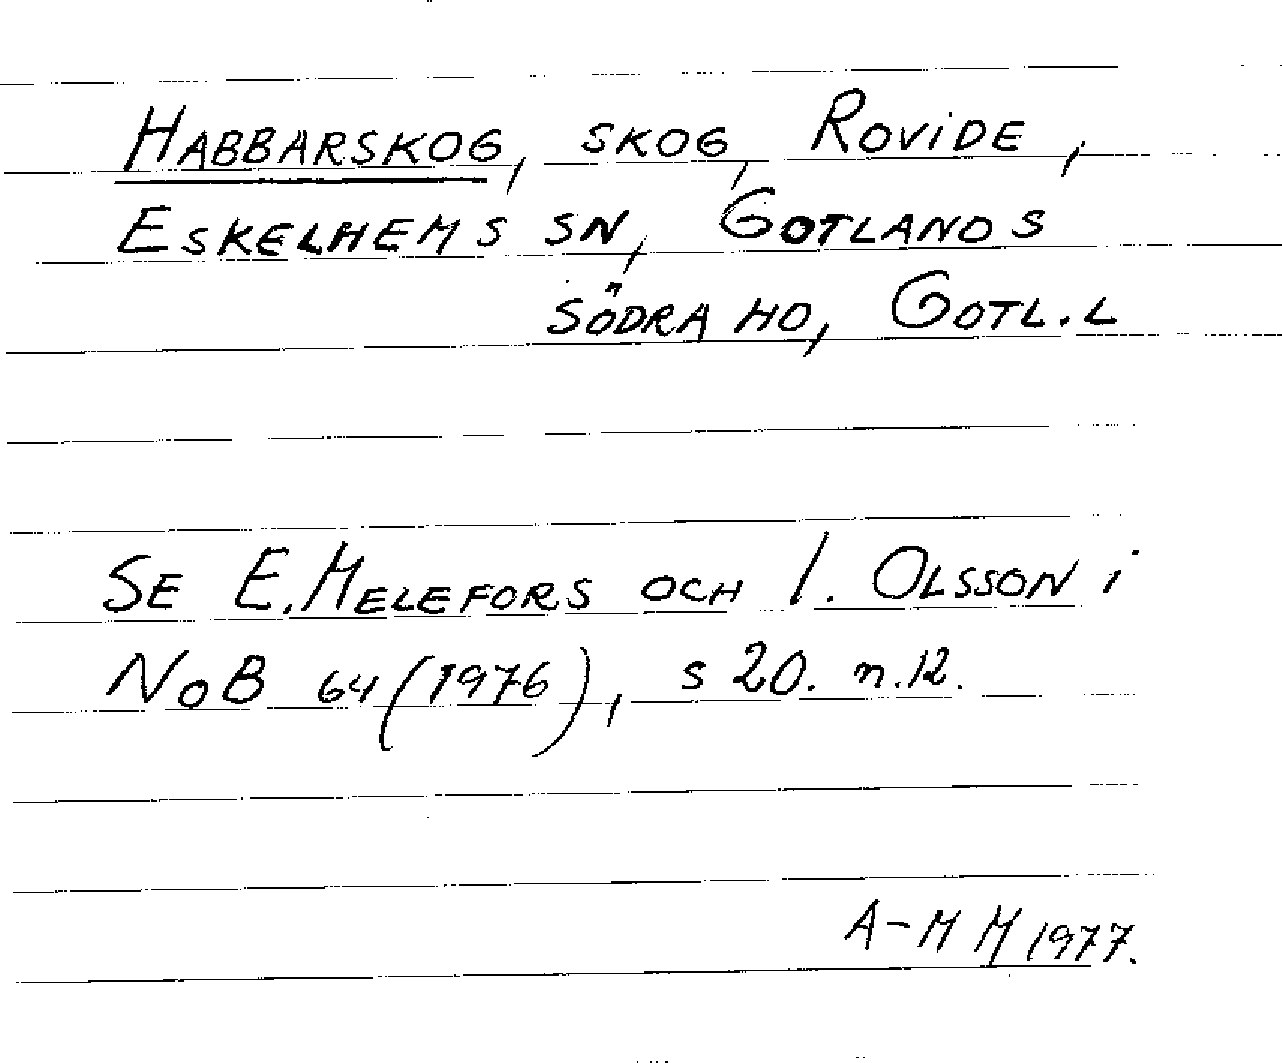 HABBARSKOG, SKOG, ROVIDE,
ESKELHEMS SN, GOTLANDS
SÖDRA HD, GOTL.L
SE E.MELEFORS OCH I. OLSSON i
NoB 64 (1976), s 20. n.12.
A-M M 1977.